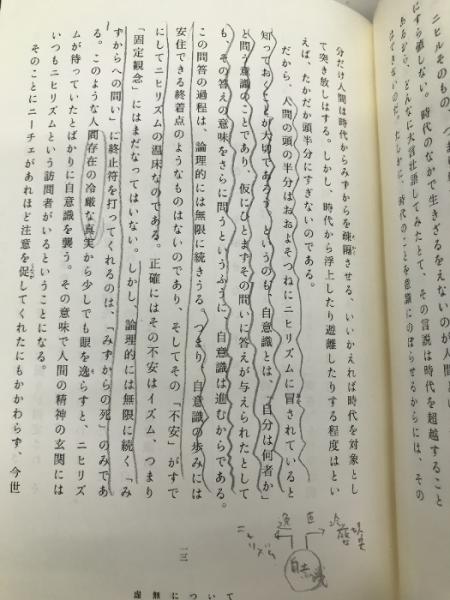 ニヒルそのもの、つま
にすら値しない。時代のなかで生きざるをえないのが人間と
あるから、どんなに大言壮語してみたとて、その言説は時代を超越すること
はできないのだ。たしかに、時代のことを意識にのぼらせるからには、その
分だけ人間は時代からみずからを疎隔させる、いいかえれば時代を対象とし
て突き放しはする。しかし、時代から浮上したり避離したりする程度はとい
えば、たかだか頭半分にすぎないのである。
だから、人間の頭の半分はおおよそつねにニヒリズムに冒されていると
知っておくことが大切であろう。というのも、自意識とは、「自分は何者か」
と問う意識のことであり、仮にひとまずその問いに答えが与えられたとして
も、その答えの意味をさらに問うというふうに、自意識は進むからである。
この問答の過程は、論理的には無限に続きうる。つまり、自意識の歩みには
安住できる終着点のようなものはないのであり、そしてその「不安」がす
にしてニヒリズムの温床なのである。正確にはその不安はイズム、つまり
「固定観念」にはまだなってはいない。しかし、論理的には無限に続く「み
ずからへの問い」に終止符を打ってくれるのは、「みずからの死」のみであ
る。このような人間存在の冷厳な真実から少しでも眼を逸らすと、ニヒリズ
ムが待っていたとばかりに自意識を襲う。その意味で人間の精神の玄関には
いつもニヒリズムという訪問者がいるということになる。
そのことにニーチェがあれほど注意を促してくれたにもかかわらず、今世
一三
虚無について
冷厳な
真実
直
逸
ニヒリズム
自意識